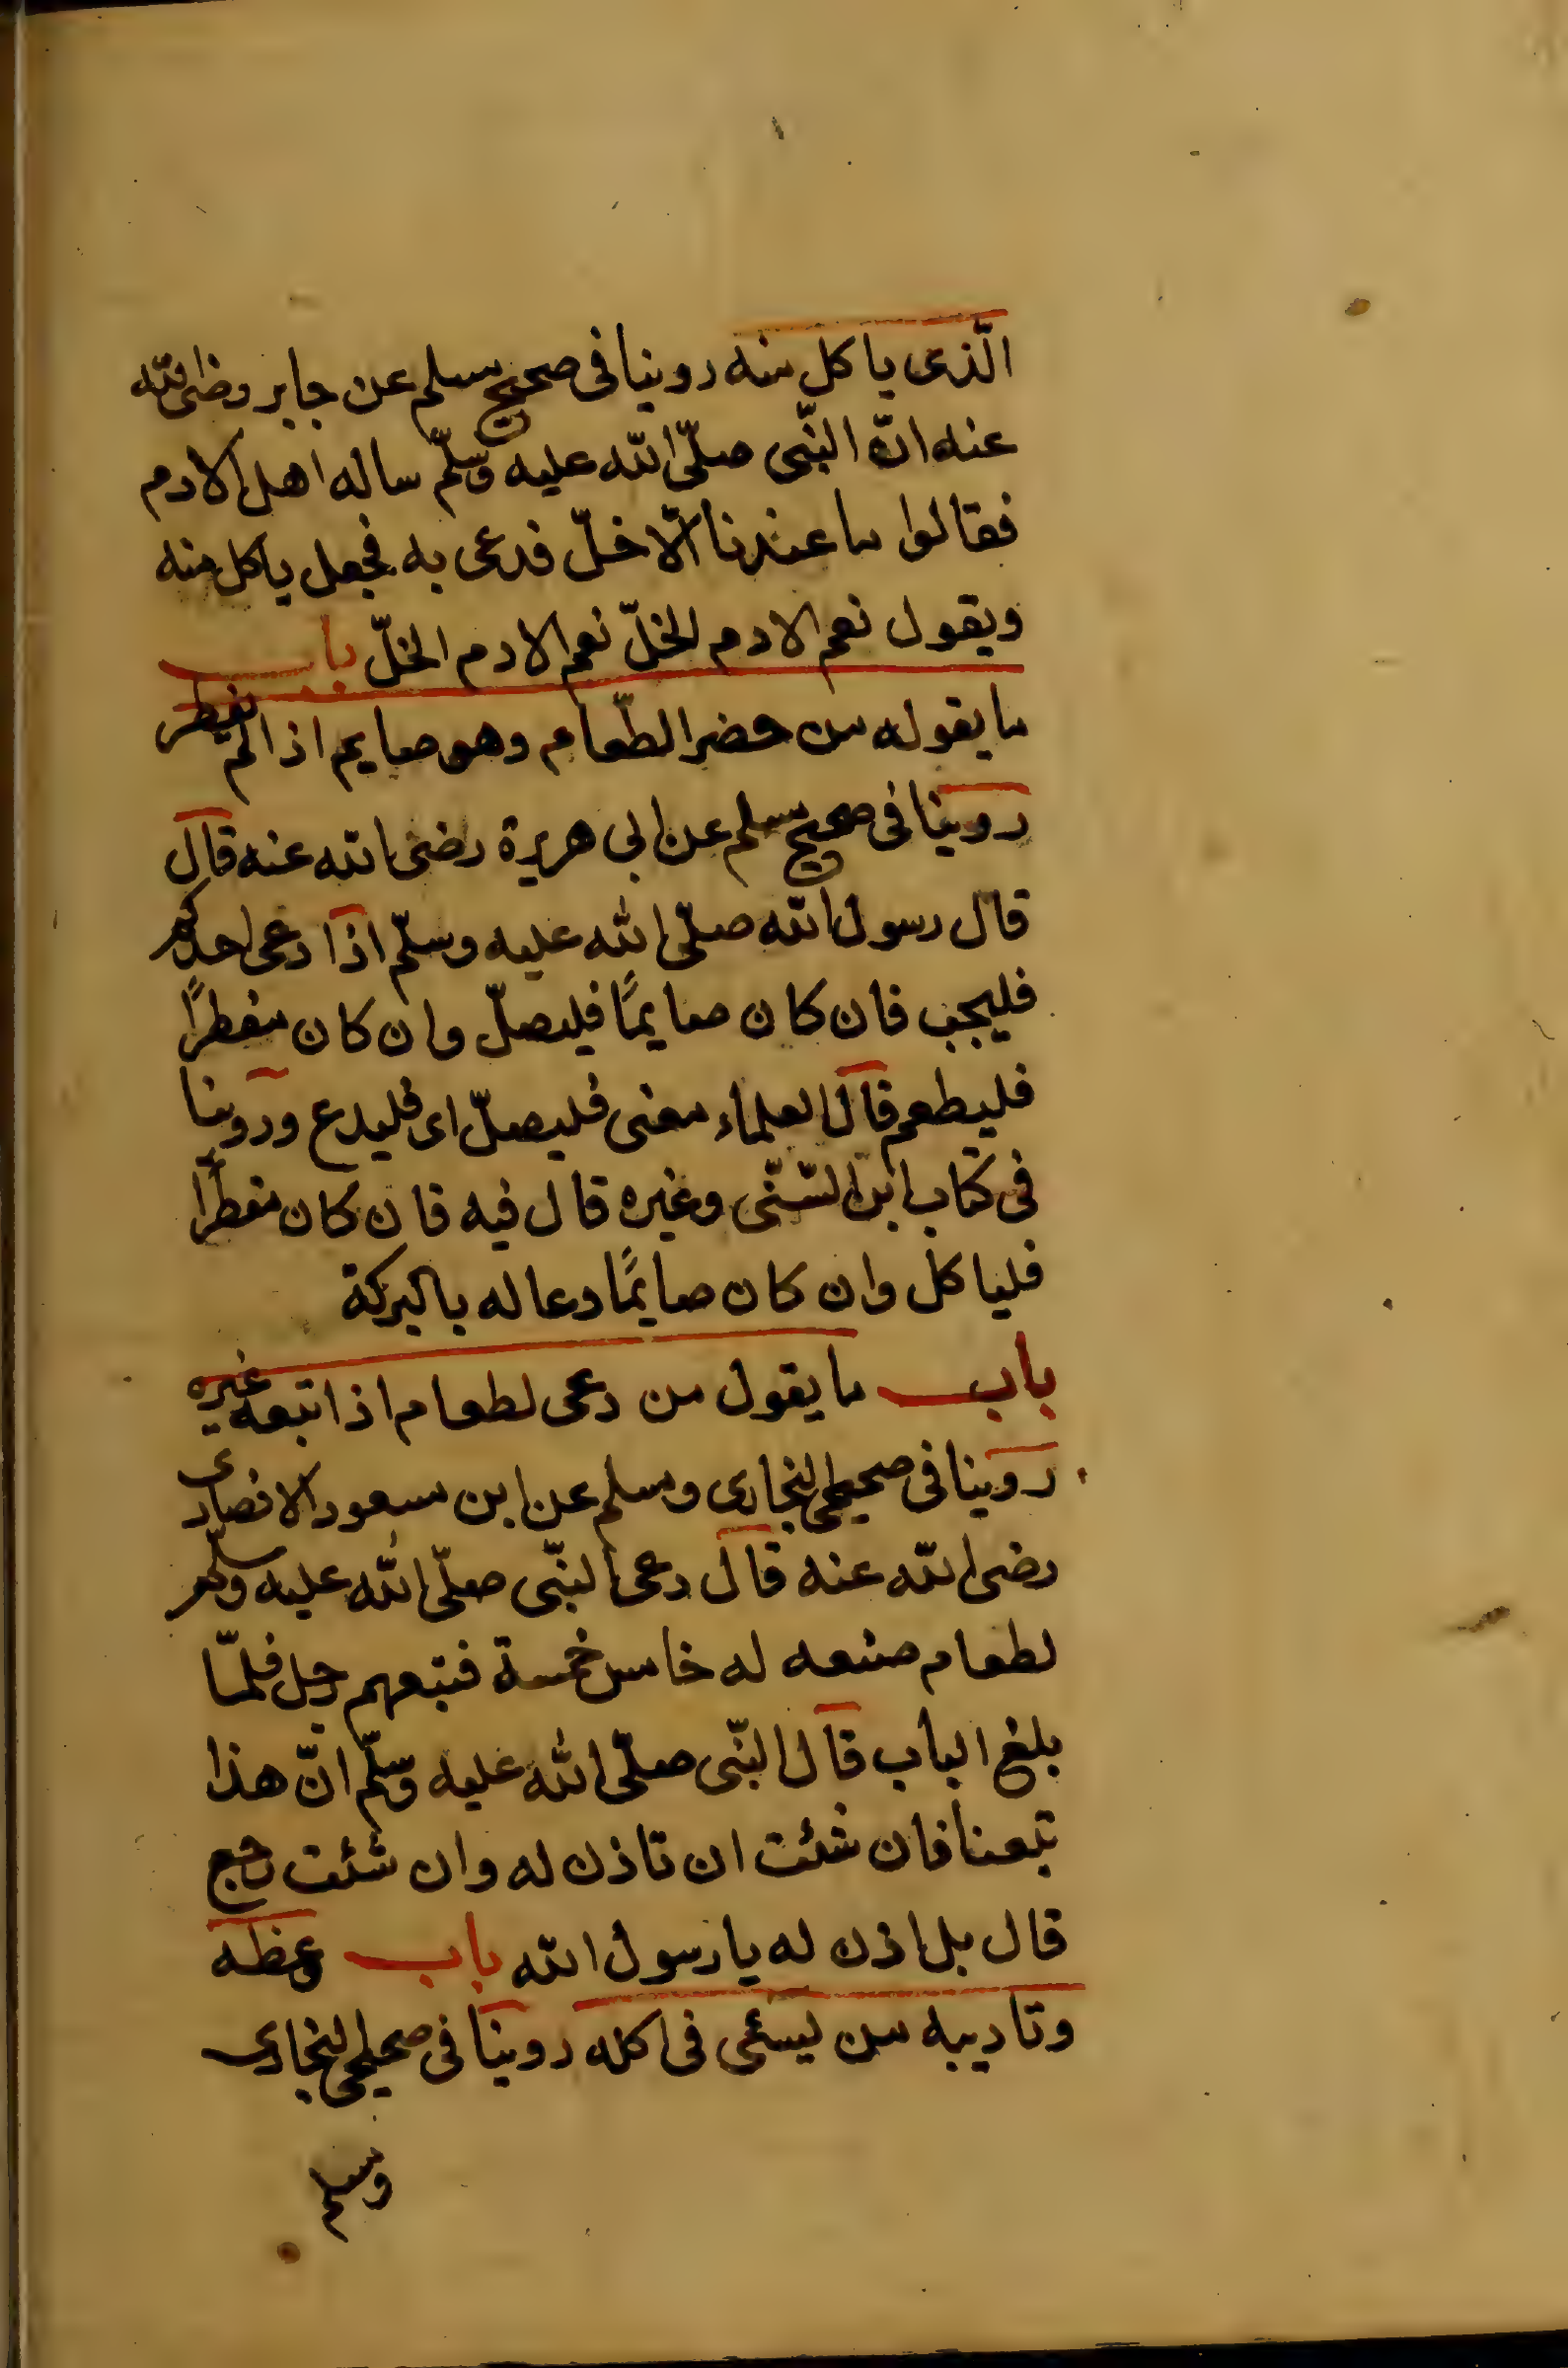 الّذى ياكل منه روينا فى صحيح مسلم عن جابر رضى الله
عنه انّ النّبى صلّى الله عليه وسلّم ساله اهل الادم
فقالوا ما عندنا الّا خلّ فدعى به فجعل ياكل منه
ويقول نعم الادم الخلّ نعم الادم الخلّ باب
ما يقوله من حضر الطّعام وهو صايم اذا لم يفطر
روينا فى صحيح مسلم عن ابى هريرة رضى الله عنه قال
قال رسول الله صلّى الله عليه وسلّم اذا دعى احدكم
فليجب فان كان صايمًا فليصلّ وان كان مفطرًا
فليطعم قال العلماء معنى فليصلّ اى فليدع وروينا
فى كتاب ابن السّنّى وغيره قال فيه فان كان مفطرًا
فلياكل وان كان صايمًا دعا له بالبركة
باب ما يقول من دعى لطعام اذا تبعه غيره
روينا فى صحيحى البخارى ومسلم عن ابن مسعود الانصارى
رضى الله عنه قال دعى النّبى صلّى الله عليه وسلّم
لطعام صنعه له خامس خمسة فتبعهم رجل فلمّا
بلغ الباب قال النّبى صلّى الله عليه وسلّم انّ هذا
تبعنا فان شئت ان تاذن له وان شئت رجع
قال بل اذن له يا رسول الله باب وعظه
وتاديبه من يسئى فى اكله روينا فى صحيحى البخارى
ومسلم